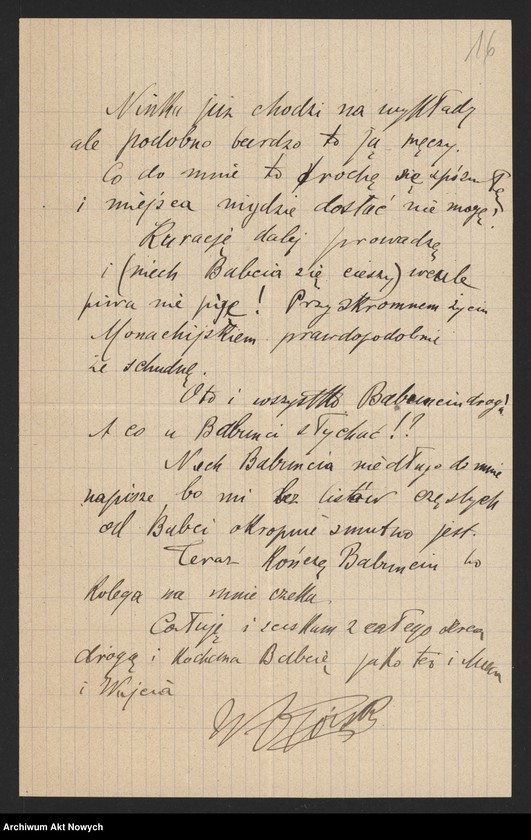 16
Ninka już chodzi na wykłady
ale podobno bardzo to ją męczy.
Co do mnie to trochę się spóźniłem
i miejsca nigdzie dostać nie mogę!
Kurację dalej prowadzę
i (niech Babcia się cieszy) wcale
piwa nie piję! Przy skromnem życiu
Monachijskiem prawdopodobnie
że schudnę.
Oto i wszystko Babuniu droga
A co u Babunci słychać!?
Niech Babuncia niedługo do mnie
napisze bo mi bez listów częstych
od Babci okropnie smutno jest.
Teraz kończę Babuniu bo
kolega na mnie czeka.
Całuję i ściskam z całego serca
drogą i kochaną Babcię jako też i
i Wujcia